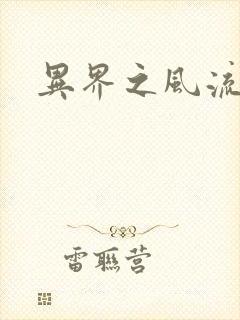 異界之風流
雷聯营